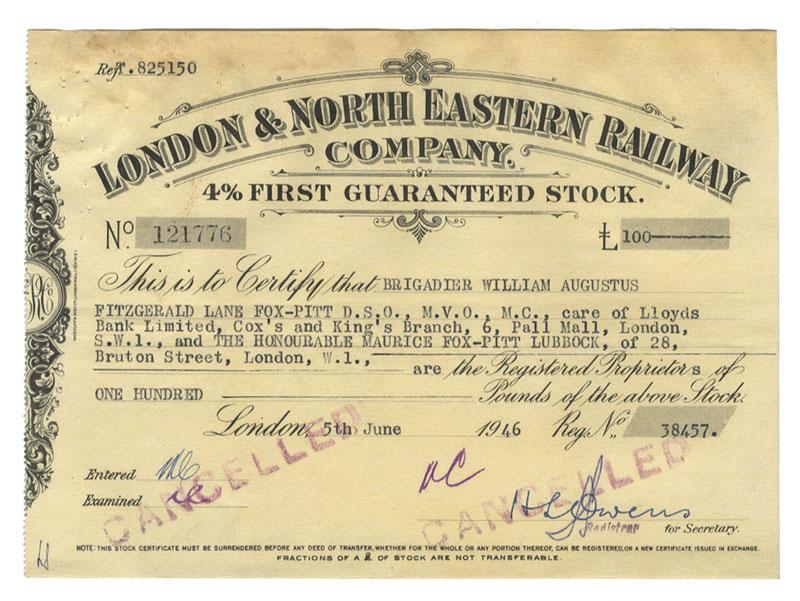 Ref T. 825150
LONDON & NORTH EASTERN RAILWAY
COMPANY.
4% FIRST GUARANTEED STOCK.
No 121776 £ 100
This is to Certify that BRIGADIER WILLIAM AUGUSTUS
FITZGERALD LANE FOX-PITT D.S.O., M.V.O., M.C., care of Lloyds
Bank Limited, Cox's and King's Branch, 6, Pall Mall, London,
S.W.1., and THE HONOURABLE MAURICE FOX-PITT LUBBOCK, of 28,
Bruton Street, London, W.1., are the Registered Proprietors of
ONE HUNDRED Pounds of the above Stock.
London, 5th June 1946 Reg. No. 38457.
CANCELLED
CANCELLED
Entered
Examined
H L Owens
Registrar for Secretary.
NOTE: THIS STOCK CERTIFICATE MUST BE SURRENDERED BEFORE ANY DEED OF TRANSFER, WHETHER FOR THE WHOLE OR ANY PORTION THEREOF, CAN BE REGISTERED, OR A NEW CERTIFICATE ISSUED IN EXCHANGE.
FRACTIONS OF A £ OF STOCK ARE NOT TRANSFERABLE.